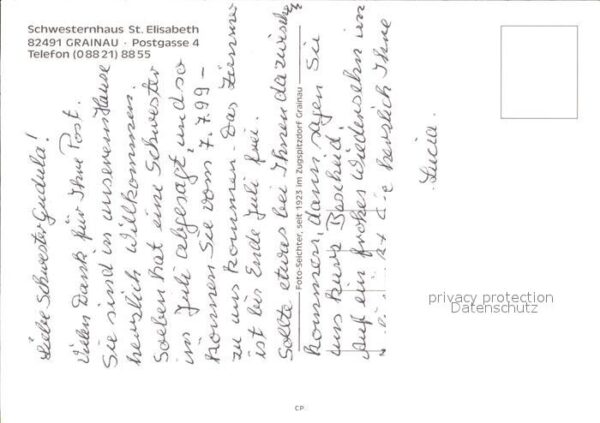 Schwesternhaus St. Elisabeth
82491 GRAINAU · Postgasse 4
Telefon (08821) 8855
Liebe Schwester Gudula!
Vielen Dank für Ihre Post.
Sie sind in unserem Hause
herzlich willkommen.
Soeben hat eine Schwester
im Juli abgesagt, und so
können Sie vom 7.7.99 -
zu uns kommen. Das Zimmer
ist bis Ende Juli frei.
Sollte etwas bei Ihnen dazwischen
kommen, dann sagen Sie
uns kurz Bescheid!
Auf ein frohes Wiedersehn im
herzlich Ihre
Lucia.
Foto-Seichter, seit 1923 im Zugspitzdorf Grainau
privacy protection
Datenschutz
CP